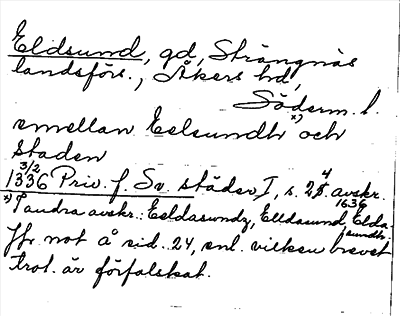 Eldsund, gd, Strängnäs
landsförs., Åkers hd,
Söderm. l.
emellan Eelsundh x) och
staden
3/2
1336 Priv. f. Sv. städer I, s. 24 avskr.
1636
x) I andra avskr.: Eeldasundz, Elldasund, Elda-
sundh.
Jfr not å sid. 24, enl. vilken brevet
trol. är förfalskat.